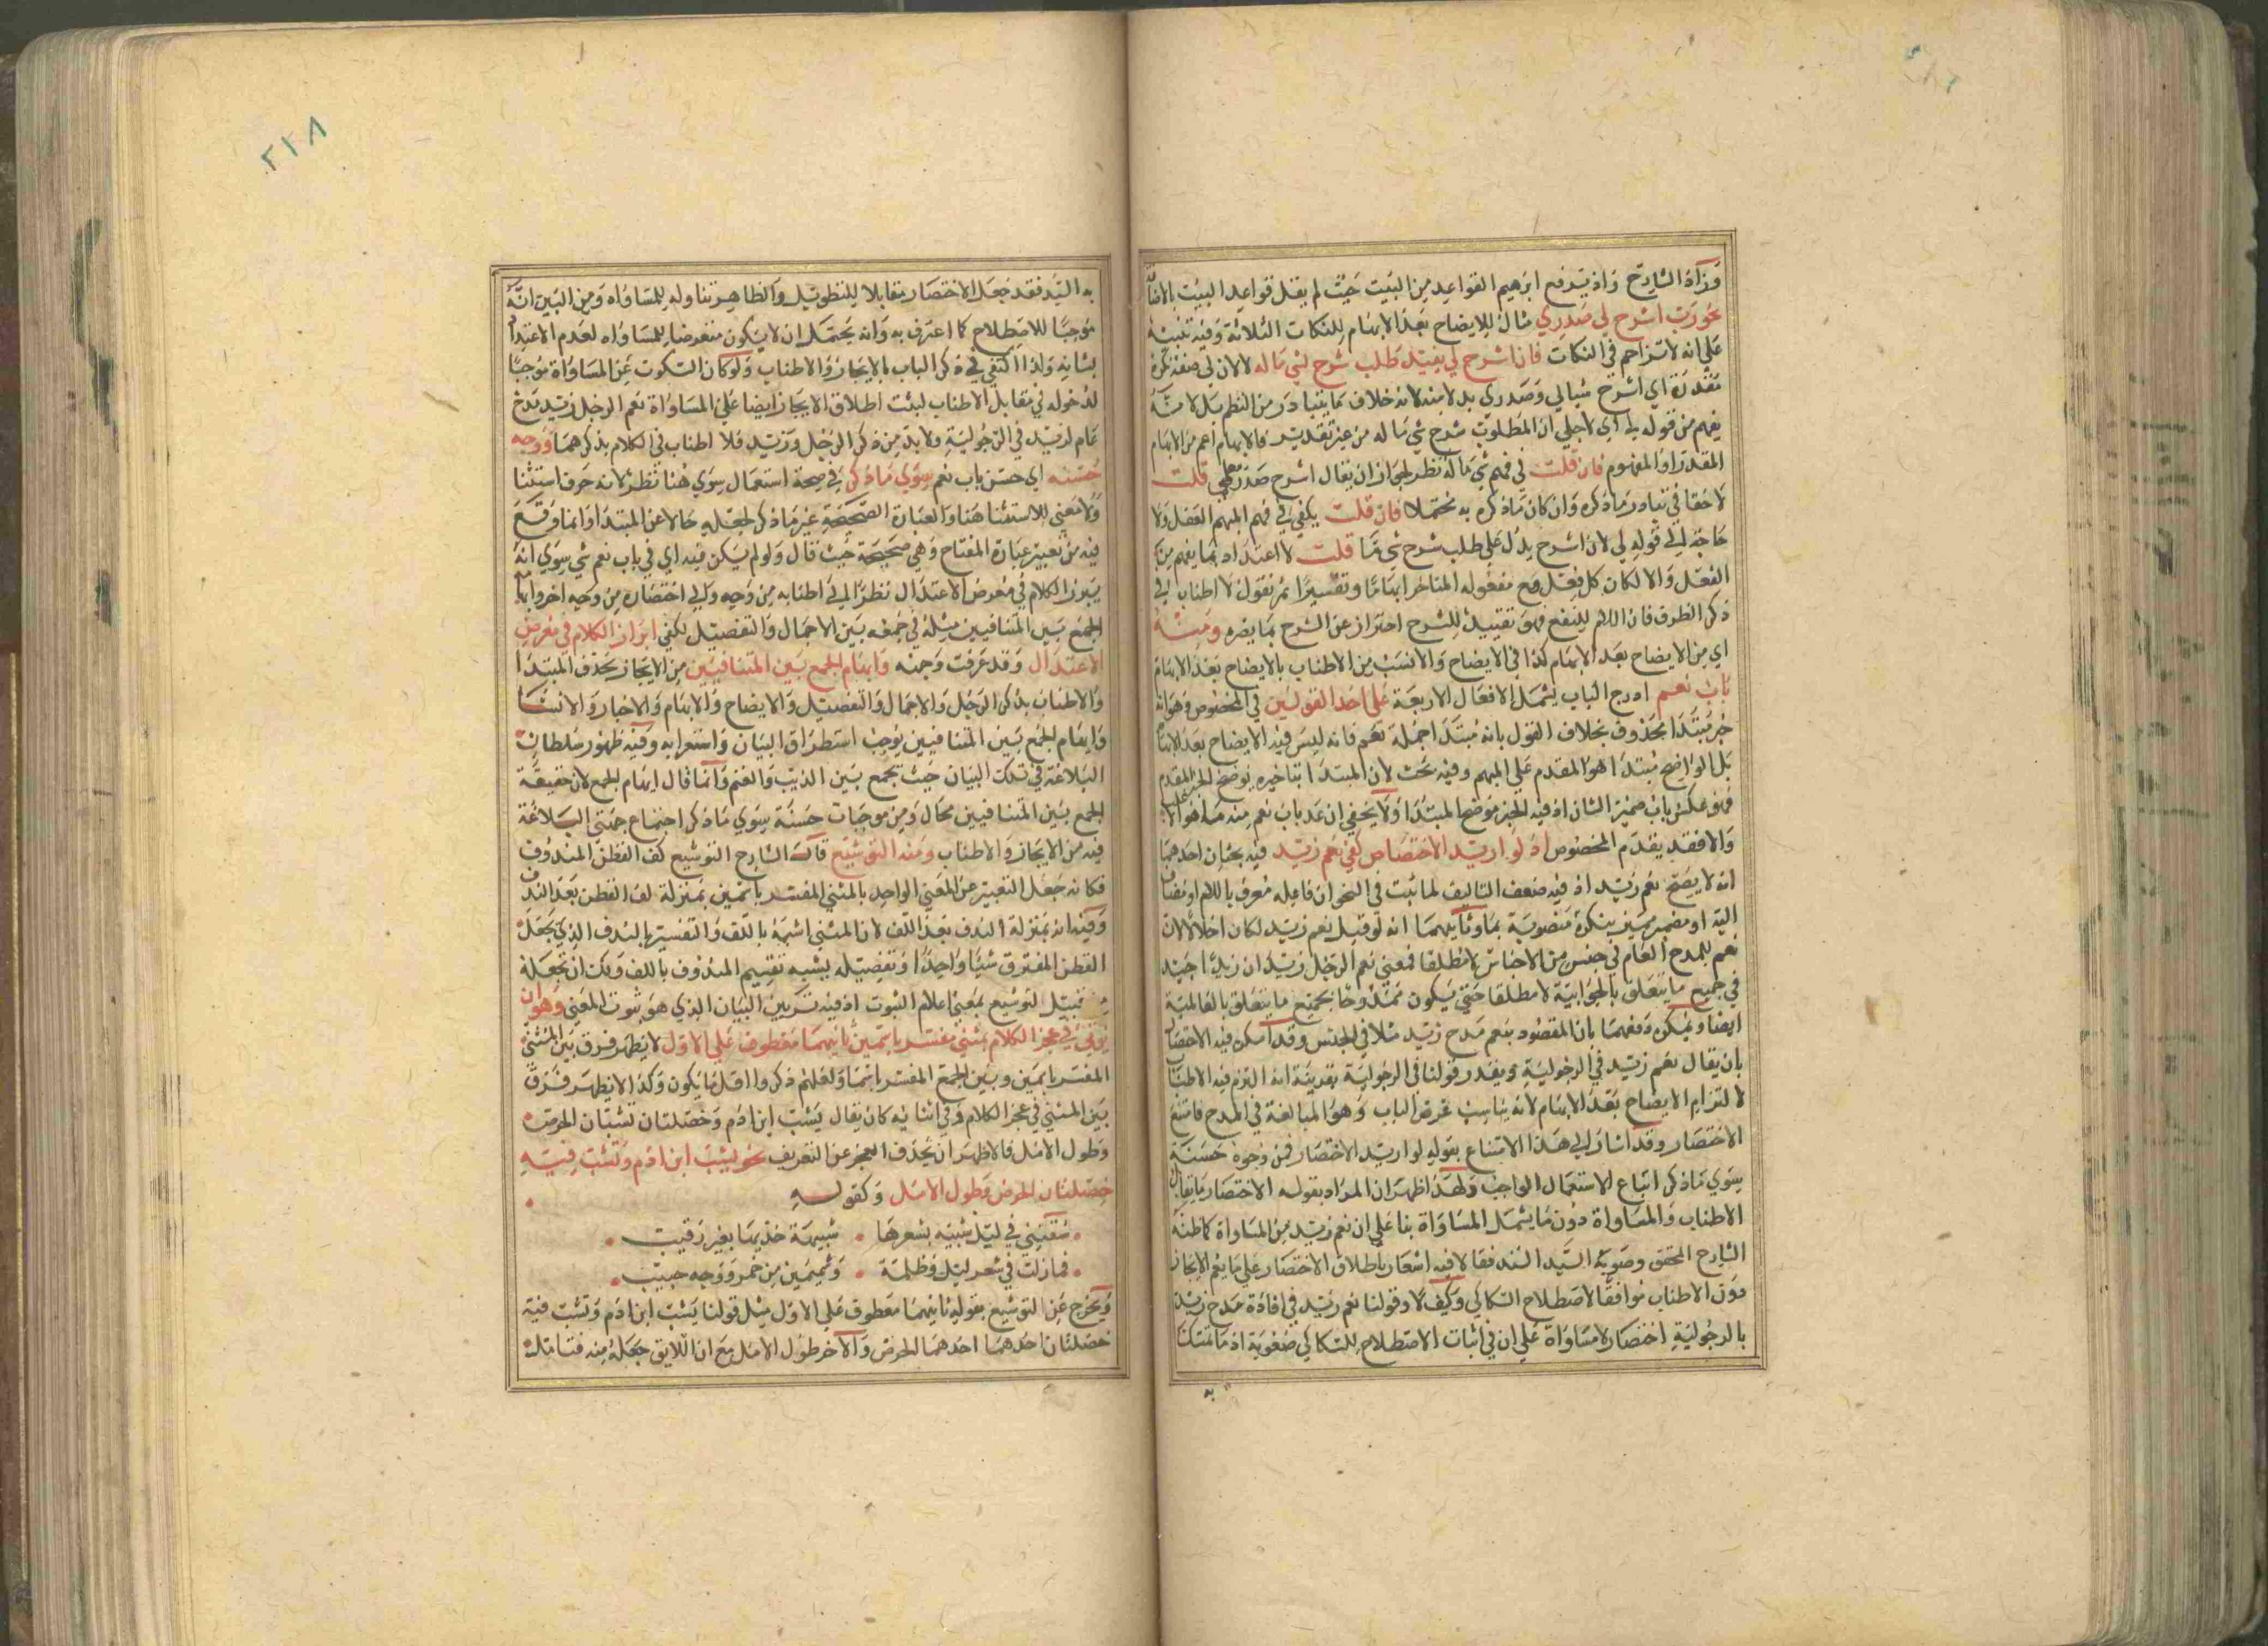 وزاد الشارح واذ يرفع ابرهيم القواعد من البيت حيث لم يقل قواعد البيت بالاضافة
نحو رب اشرح لي صدري مثال للايضاح بعد الابهام للنكات الثلاثة وفيه تنبيه
على انه لا تزاحم في النكات فان اشرح لي يفيد طلب شرح لشي ما له لا لان لي صفة نكرة
مقدرة اي اشرح شيالي وصدري بدلا منه لانه خلاف ما يتبادر من النظم بل لانه
يفهم من قوله لي اي لاجلي ان المطلوب شرح شي ما له من غير تقدير فالابهام اعم من الابهام
المقدر او المفهوم فان قلت في فهم شي ما له نظر لجواز ان يقال اشرح صدر قلت
لا خفا في تبادر ما ذكره وان كان ما ذكره به محتملا فان قلت يكفي في فهم المبهم الفعل ولا
حاجة الى قوله لي لان اشرح يدل على طلب شرح شي ما قلت لا اعتداد بما يفهم من
الفعل والا لكان كل فعل مع مفعوله المتاخر ابهاما وتفسيرا ثم نقول لا اطناب في
ذكر الظرف فان اللام للنفع فهو تقييد للشرح احتراز عن الشرح بما يضره ومنه
اي من الايضاح بعد الابهام كذا في الايضاح والانسب من الاطناب بالايضاح بعد الابهام
باب نعم ادرج الباب ليشمل الافعال الاربعة على احد القولين في المخصوص وهو انه
خبر مبتدا محذوف بخلاف القول بانه مبتدا جملة نعم فانه ليس فيه الايضاح بعد الابهام
بل الواضح مبتدا هو المقدم على المبهم وفيه بحث لان المبتدا بتاخيره يوضح الخبر المقدم
فهو عكس باب ضمير الشان اذ فيه الخبر موضح المبتدا ولا يخفى ان عد باب نعم منه
والا فقد يقدم المخصوص اذ لو اريد الاختصاص كفى نعم زيد فيه بحثان احدهما
انه لا يصح نعم زيد اذ فيه ضعف التاليف لما ثبت في النحو ان فاعله معرف باللام او مضاف
اليه او مضمر مميز بنكرة منصوبة بما وثانيهما انه لو قيل نعم زيد لكان اخلالا لان
نعم للمدح العام في جنس من الاجناس لا مطلقا فمعنى نعم الرجل زيد ان زيدا جيد
في جميع ما يتعلق بالجوابية لا مطلقا حتى يكون ممدوحا بجميع ما يتعلق بالعالمية
ايضا ويمكن دفعهما بان المقصود بنعم مدح زيد مثلا في الجنس وقد امكن فيه الاختصار
بان يقال نعم زيد في الرجولية ويقدر قولنا في الرجولية بقرينة انه التزم فيه الاطناب
لا لتزام الايضاح بعد الابهام لانه يناسب غرض الباب وهو المبالغة في المدح فامتنع
الاختصار وقد اشار الى هذا الامتناع بقوله لو اريد الاختصار فمن وجوه حسنة
سوي ما ذكر اتباع الاستعمال الواجب ولهذا ظهر ان المراد بقوله الاختصار ما يقابل
الاطناب والمساواة دون ما يشمل المساواة بنا على ان نعم زيد من المساواة كما ظنه
الشارح المحقق وصوبه السيد السند فقالا فيه اشعار باطلاق الاختصار على ما يعم الايجاز
دون الاطناب موافقا لاصطلاح السكاكي وكيف لا وقولنا نعم زيد في افادة مدح زيد
بالرجولية اختصار لا مساواة على ان في اثبات الاصطلاح للسكاكي صعوبة اذ ما تمسكنا
به
٢١٨
به السيد فقد جعل الاختصار مقابلا للتطويل والظاهر تناوله للمساواه ومن البين انه
موجبا للاصطلاح كما اعترف به وانه يحتمل ان لا يكون متعرضا للمساواه لعدم الاعتداد
بشانه ولذا اكتفى في ذكر الباب بالايجاز والاطناب ولو كان السكوت عن المساواة موجبا
لدخوله في مقابل الاطناب لبثت اطلاق الايجاز ايضا على المساواة نعم الرجل زيد مدح
عام لزيد في الرجولية ولا بد من ذكر الرجل وزيد فلا اطناب في الكلام بذكرهما ووجه
حسنه اي حسن باب نعم سوي ما ذكر في صحة استعمال سوي هنا نظر لانه حرف استثنا
ولا معنى للاستثنا هنا والعبارة الصحيحة غير ما ذكر لجعله حالا عن المبتدا وانما وقع
فيه من تعبير عبارة المفتاح وهي صحيحة حيث قال ولو لم يكن فيه اي في باب نعم شي سوي انه
يبرز الكلام في معرض الاعتدال نظرا الى اطنابه من وجه والى اختصاره من وجه اخر وايهام
الجمع بين المتنافيين مثله في جمعه بين الاجمال والتفصيل لكفى ابراز الكلام في معرض
الاعتدال وقد عرفت وجهه وايهام الجمع بين المتنافيين من الايجاز بحذف المبتدا
والاطناب بذكر الرجل والاجمال والتفصيل والايضاح والابهام والاخبار والانشا
وايهام الجمع بين المتنافيين يوجب استطراق البيان واستغرابه وفيه ظهور سلطان
البلاغة في تلك البيان حيث تجمع بين الذيب والغنم وانما قال ايهام الجمع لان حقيقة
الجمع بين المتنافيين محال ومن موجبات حسنة سوي ما ذكر اجتماع جهتي البلاغة
فيه من الايجاز والاطناب ومنه التوشيع قال الشارح التوشيع لف القطن المندوف
فكانه جعل التعبير عن المعنى الواحد بالمثنى المفسر باسمين بمنزلة لف القطن بعد الندف
وفيه انه بمنزلة الندف بعد اللف لان المثنى اشبه باللف والتفسير بالندف الذي يجعل
القطن المفترق شيا واحدا وتفصيله يشبه تقسيم المندوف باللف ولك ان تجعله
من قبيل التوشيع بمعنى اعلام الثوب اذ فيه تزيين البيان الذي هو ثوب المعنى وهو ان
يوتى في عجز الكلام بمثنى مفسر باسمين ثانيهما معطوف على الاول لا يظهر فرق بين المثنى
المفسر باسمين وبين الجمع المفسر باسما ولعلهم ذكروا اقل ما يكون وكذا لا يظهر فرق
بين المثنى في عجز الكلام وفي اثنائه كان يقال يشب ابن ادم وخصلتان تشبان الحرص
وطول الامل فالاظهر ان يحذف العجز عن التعريف نحو يشيب ابن ادم وتشب فيه
خصلتان الحرص وطول الامل وكقوله
سقتني في ليل شبيه بشعرها شبيهة خديها بغير رقيب
فمازلت في شعر ليل وظلمة وشمسين من خمر ووجه حبيب
ويخرج عن التوشيع بقوله ثانيهما معطوف على الاول مثل قولنا يشب ابن ادم وتشب فيه
خصلتان احدهما احدهما الحرص والاخر طول الامل مع ان اللايق جعله منه فتامل